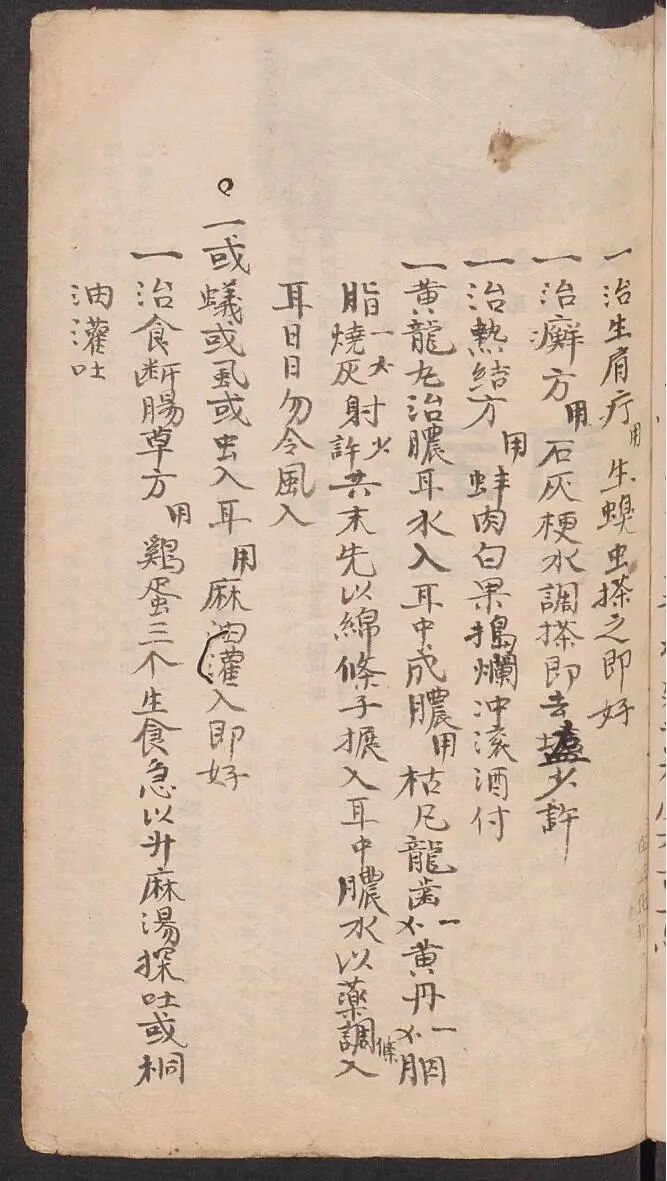 一治生肩疔用生螝虫搽之即好
一治癬方用石灰梗水調搽即去塩少許
一治熱結方用蚌肉白果搗爛冲滚酒付
一黄龍九治膿耳水入耳中成膿用枯凡龍齒一㐅黄丹一㐅胭
脂一㐅燒灰射少許共末先以綿條子搌入耳中膿水以藥調條入
耳日日勿令風入
一或蟻或虱或虫入耳用麻油灌入即好
一治食断腸草方用鷄蛋三个生食急以升麻湯探吐或桐
油灌吐